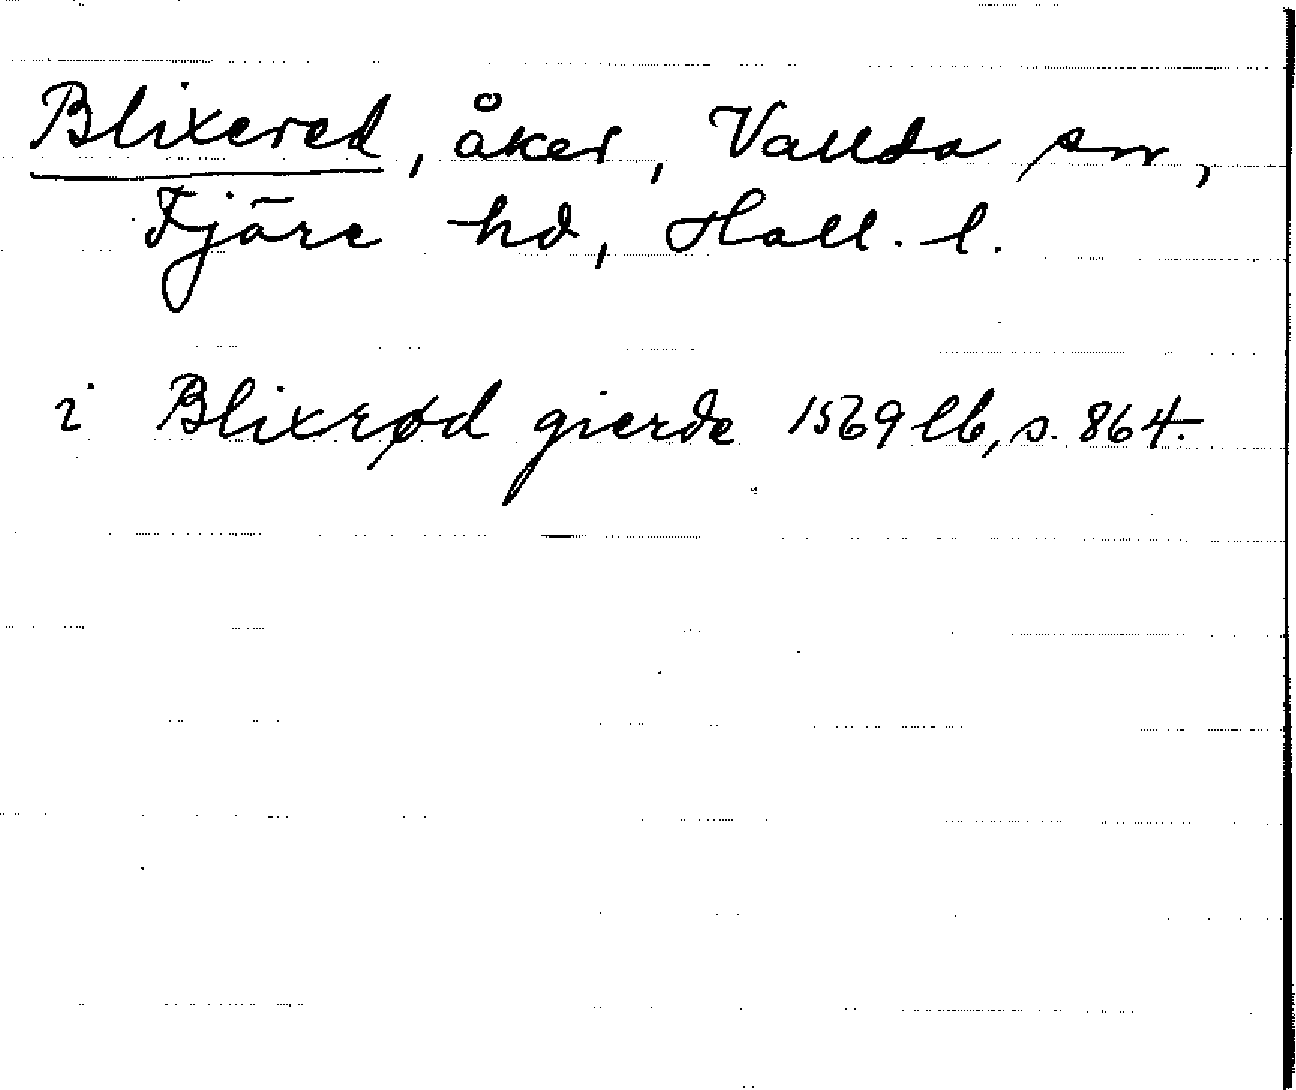 Blixered, åker, Vallda sn,
Fjäre hd, Hall. l.
i Blixrød gierde 1569 lb, s. 864.